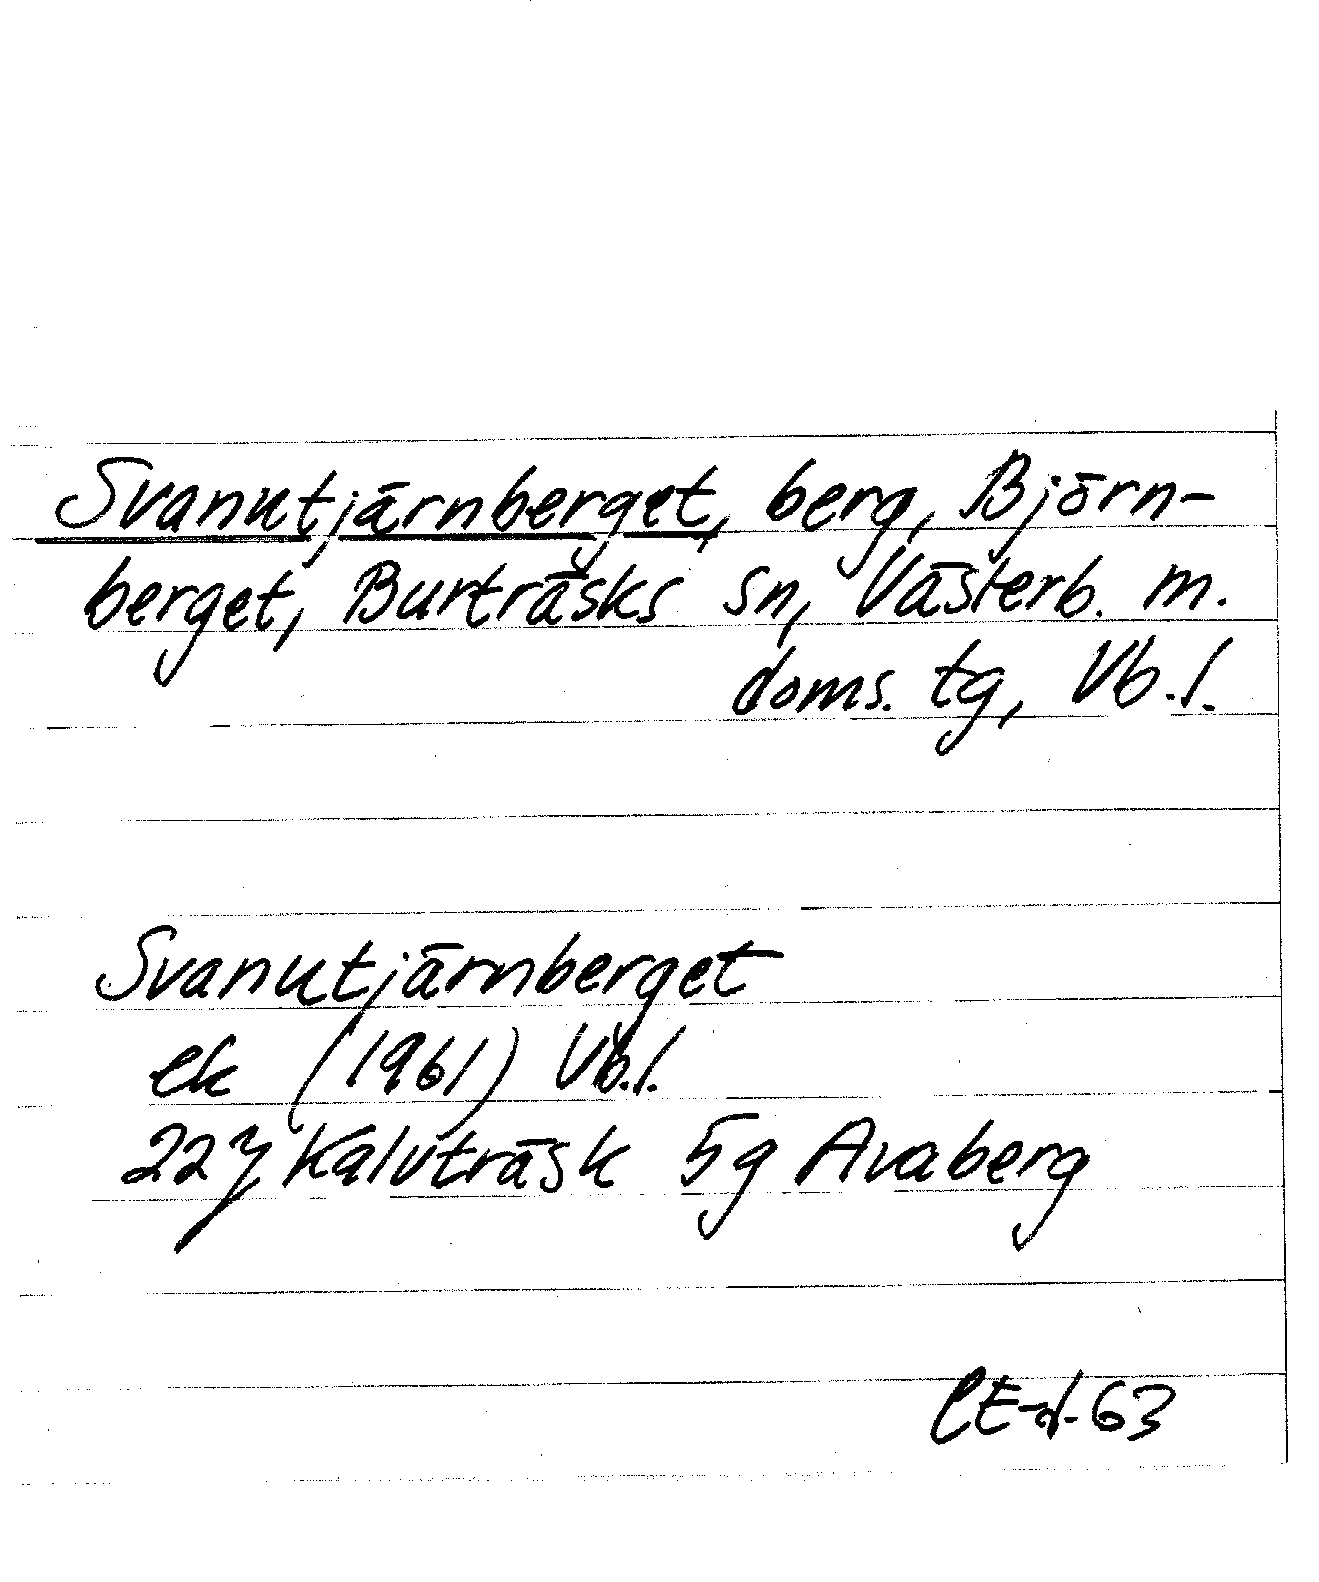 Svanutjärnberget, berg, Björn-
berget, Burträsks sn, Västerb. m.
doms. tg, Vb.l.
Svanutjärnberget
ek (1961) Vb.l.
22J Kalvträsk 5g Avaberg
63